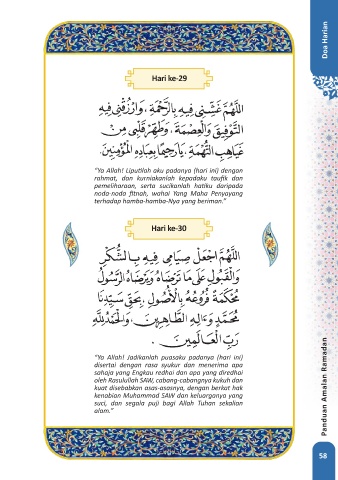 Doa Harian
Hari ke-29
اللَّهُمَّ غَشِّنِي فِيهِ بِالرَّحْمَةِ، وَارْزُقْنِي فِيهِ
التَّوْفِيقَ وَالْعِصْمَةَ، وَطَهِّرْ قَلْبِي مِنْ
غَيَاهِبِ التُّهَمَةِ، يَارَحِيمًا بِعِبَادِهِ الْمُؤْمِنِينَ
"Ya Allah! Liputilah aku padanya (hari ini) dengan
rahmat, dan kurniakanlah kepadaku taufik dan
pemeliharaan, serta sucikanlah hatiku daripada
noda-noda fitnah, wahai Yang Maha Penyayang
terhadap hamba-hamba-Nya yang beriman."
Hari ke-30
اللَّهُمَّ اجْعَلْ صِيَامِي فِيهِ بِالشُّكْرِ
وَالْقَبُولِ عَلَى مَا تَرْضَاهُ وَيَرْضَاهُ الرَّسُولُ
مُحْكَمَةً فُرُوعُهُ بِالْأُصُولِ، بِحَقِّ سَيِّدِنَا
مُحَمَّدٍ وَءَالِهِ الطَّاهِرِينَ، وَالْحَمْدُ لِلَّهِ
رَبِّ الْعَالَمِينَ .
"Ya Allah! Jadikanlah puasaku padanya (hari ini)
disertai dengan rasa syukur dan menerima apa
sahaja yang Engkau redhai dan apa yang diredhai
oleh Rasulullah SAW, cabang-cabangnya kukuh dan
kuat disebabkan asas-asasnya, dengan berkat hak
kenabian Muhammad SAW dan keluarganya yang
suci, dan segala puji bagi Allah Tuhan sekalian
alam."
Panduan Amalan Ramadan
58